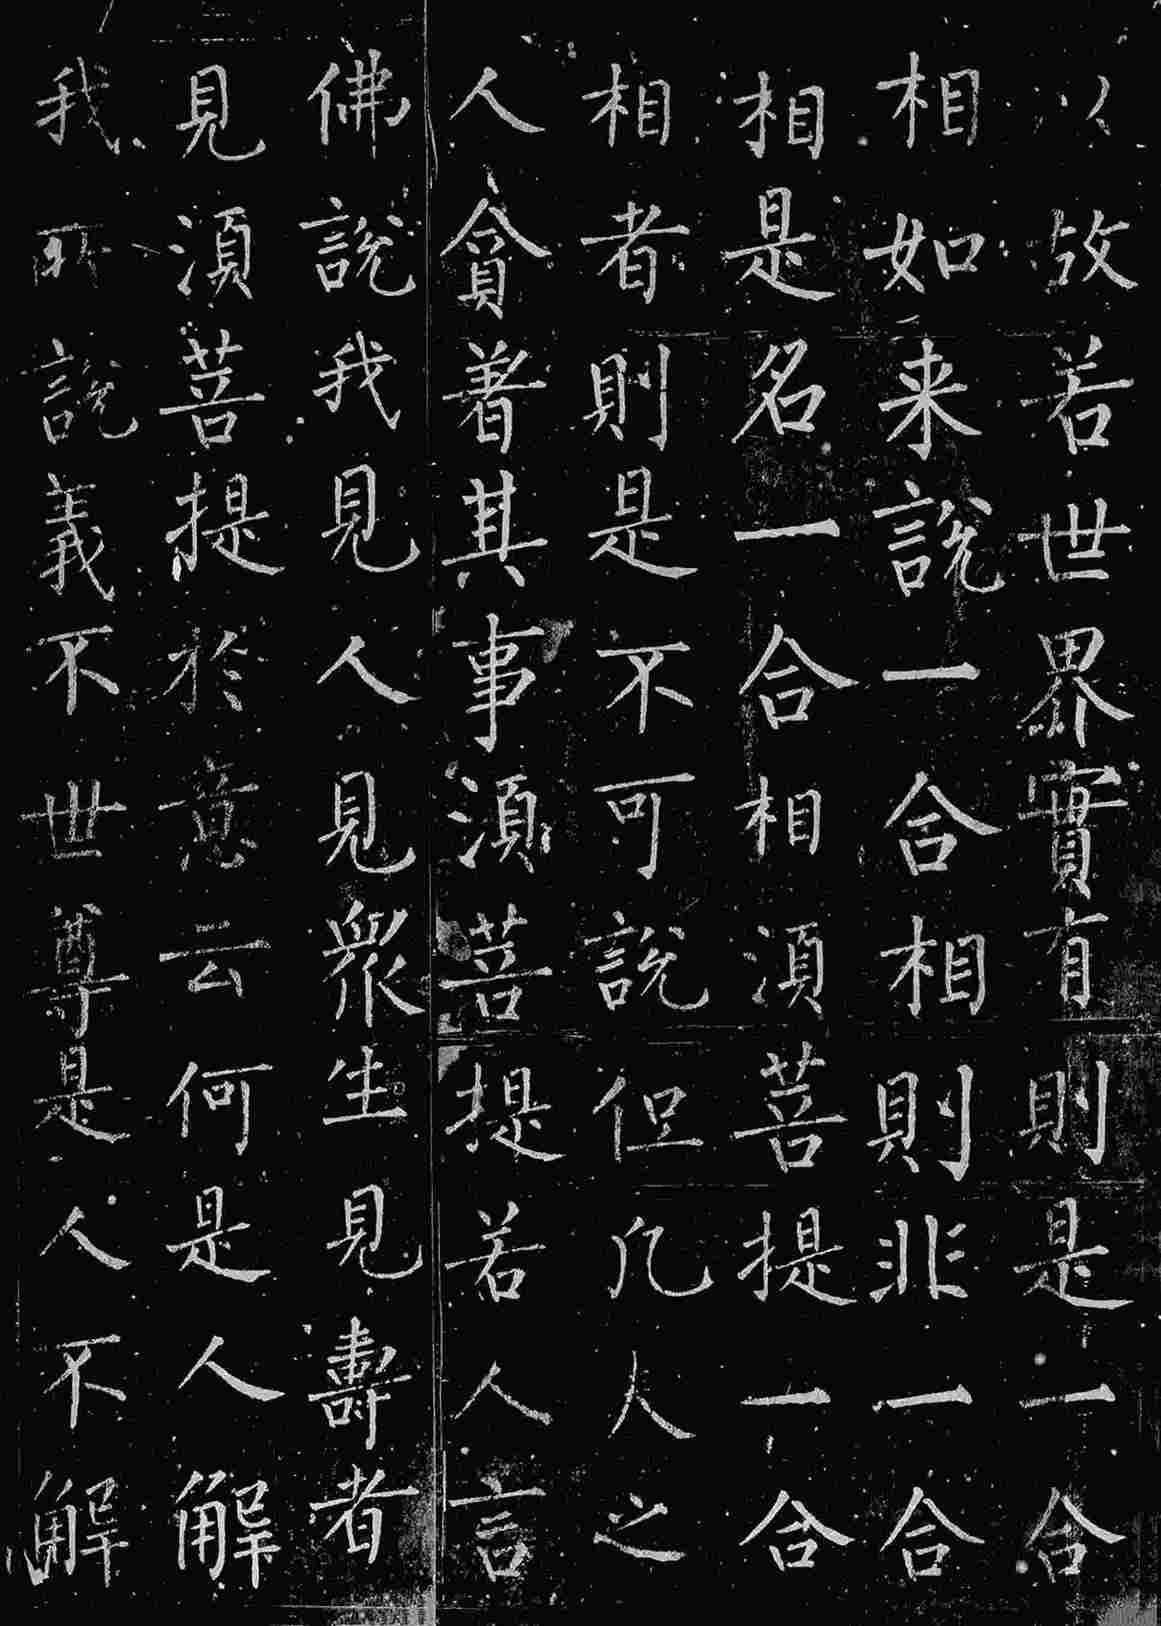 以故若世界實有則是一合
相如来說一合相則非一合
相是名一合相湏菩提一合
相者則是不可說但凡夫之
人貪著其事湏菩提若人言
佛說我見人見衆生見壽者
見湏菩提於意云何是人解
我所說義不世尊是人不解